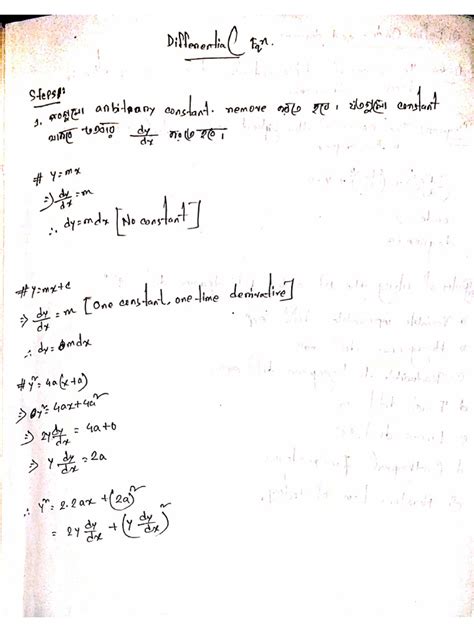 Differential Eqn.
Steps:
1. সবগুলো arbitrary constant remove করতে হবে। যতগুলো constant
থাকবে ততবার dy/dx করতে হবে।
# y=mx
⇒ dy/dx = m
∴ dy=mdx [No constant]
# y=mx+c
⇒ dy/dx = m [One constant, one time derivative]
∴ dy= mdx
# y²=4a(x+a)
⇒ y²= 4ax+4a²
⇒ 2y dy/dx = 4a+0
⇒ y dy/dx = 2a
∴ y² = 2.2ax + (2a)²
= 2y dy/dx + (y dy/dx)²